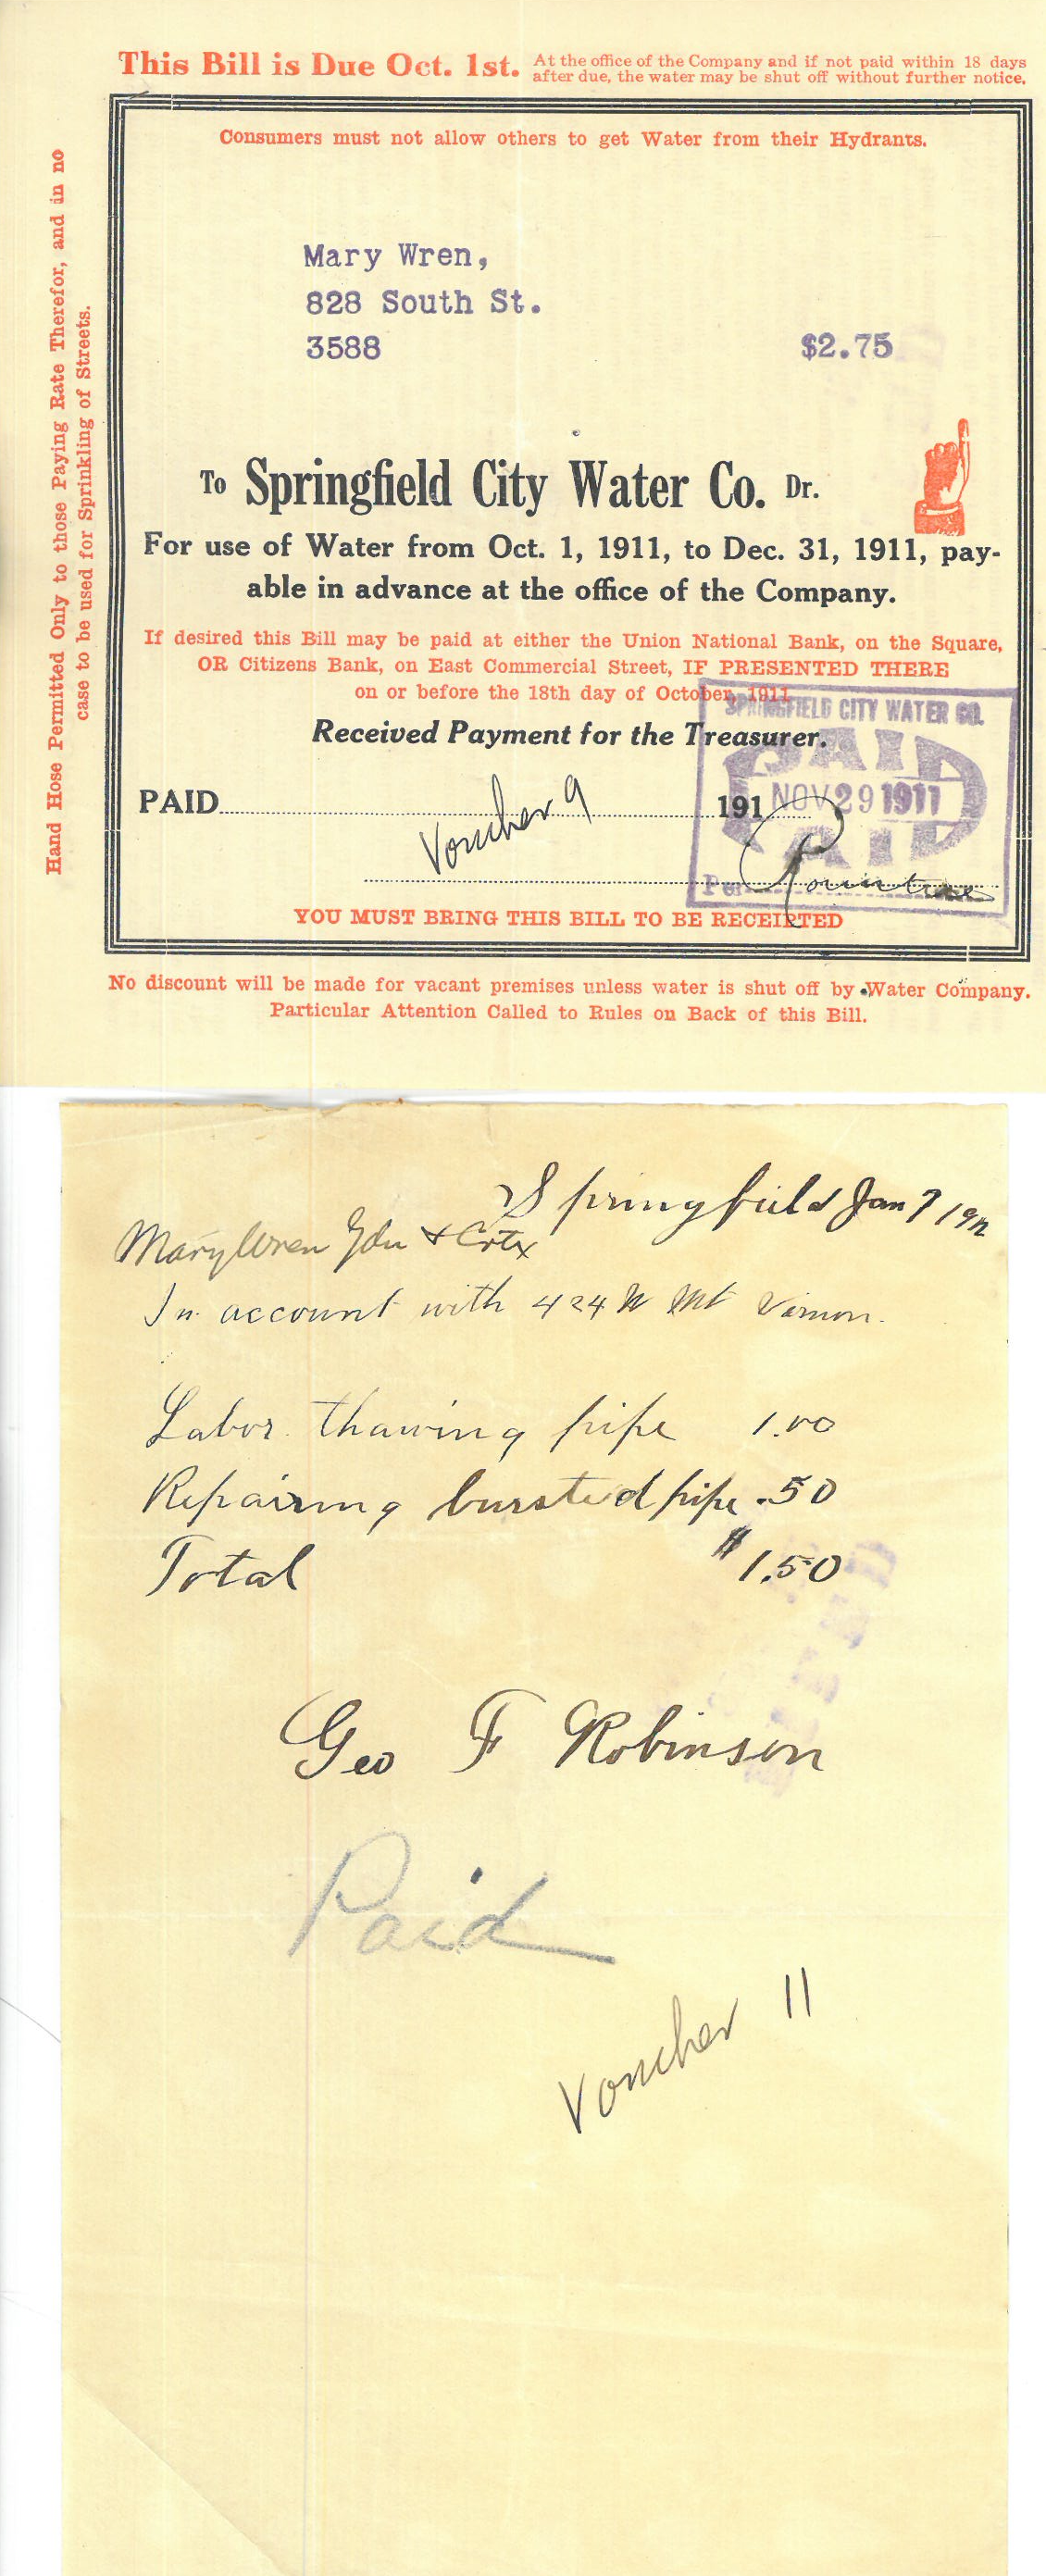 This Bill is Due Oct. 1st. At the office of the Company and if not paid within 18 days
after due, the water may be shut off without further notice.
Hand Hose Permitted Only to those Paying Rate Therefor, and in no
case to be used for Sprinkling of Streets.
Consumers must not allow others to get Water from their Hydrants.
Mary Wren,
828 South St.
3588 $2.75
To Springfield City Water Co. Dr.
For use of Water from Oct. 1, 1911, to Dec. 31, 1911, pay-
able in advance at the office of the Company.
If desired this Bill may be paid at either the Union National Bank, on the Square,
OR Citizens Bank, on East Commercial Street, IF PRESENTED THERE
on or before the 18th day of October, 1911.
SPRINGFIELD CITY WATER CO.
Received Payment for the Treasurer.
PAID
PAID Voucher 9 191
NOV 29 1911
PAID
Per
YOU MUST BRING THIS BILL TO BE RECEIPTED
No discount will be made for vacant premises unless water is shut off by Water Company.
Particular Attention Called to Rules on Back of this Bill.
Springfield Jan 7 1912
Mary Wren Gdn & Crtx
In account with 424 W Mt Vernon.
Labor thawing pipe 1.00
Repairing bursted pipe .50
Total $1.50
Geo F Robinson
Paid
Voucher 11